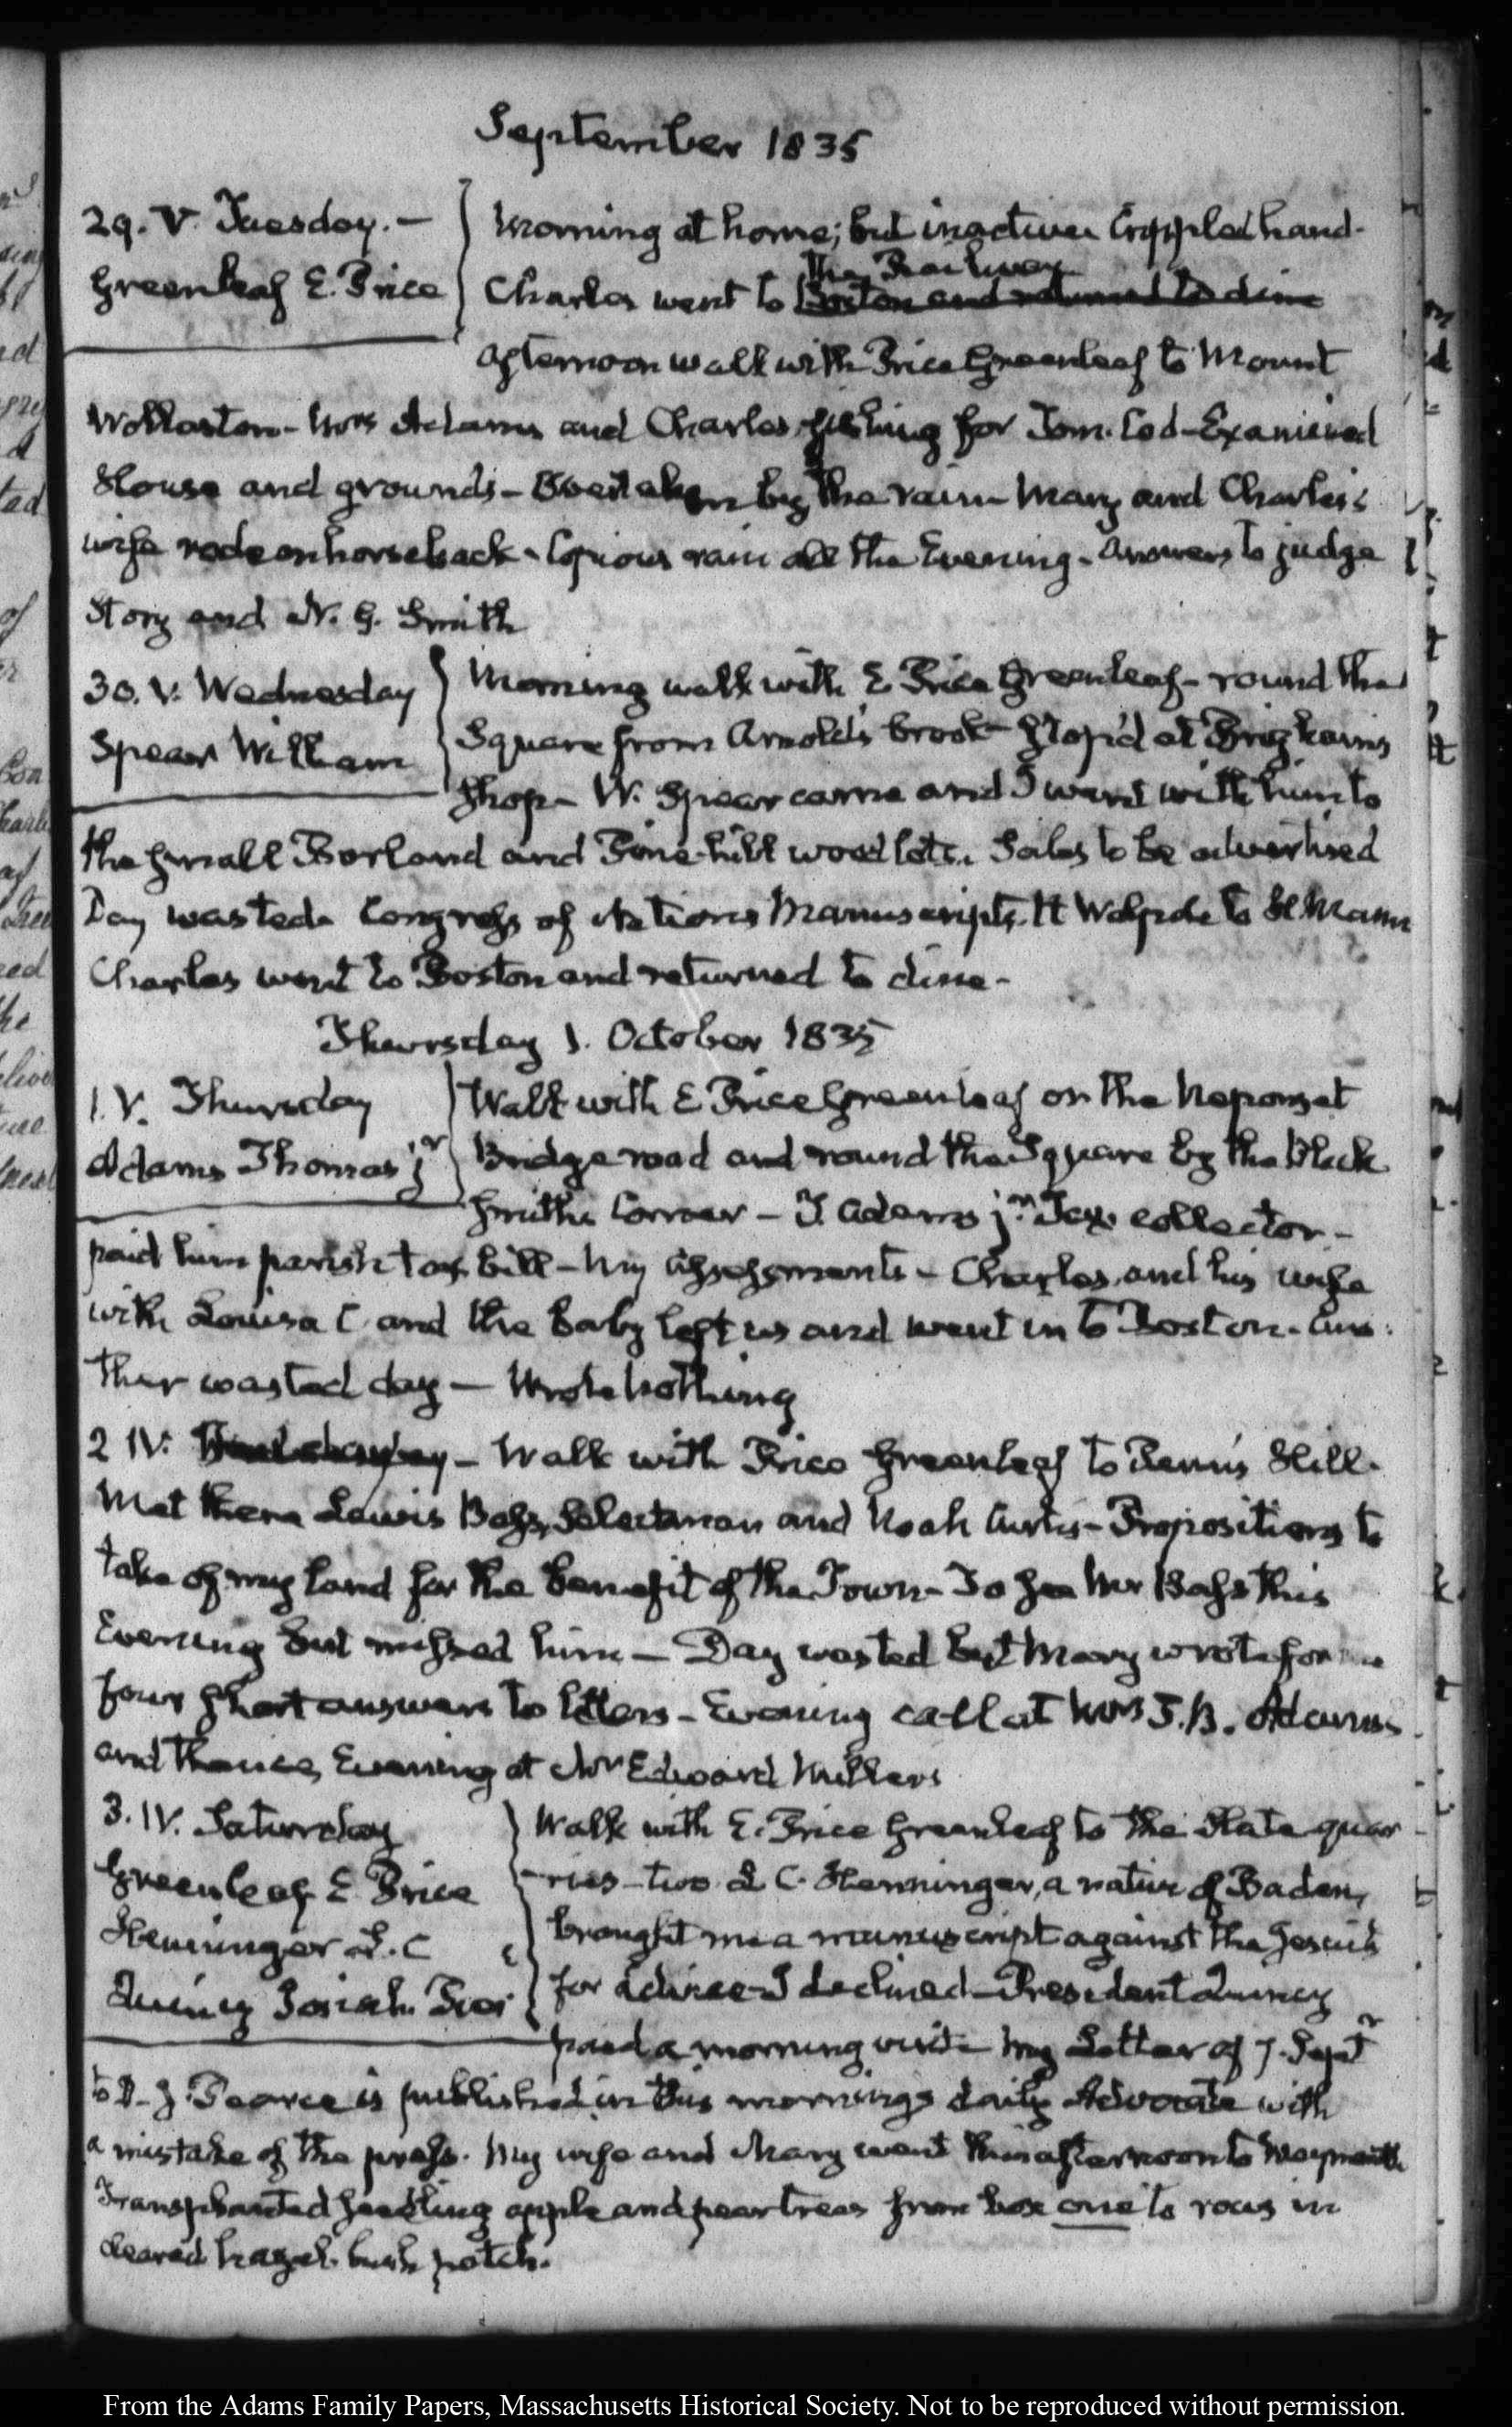 September 1835
29. V. Tuesday. —
Greenleaf E. Price
Morning at home; but inactive. Crippled hand.
the Railway
Charles went to Boston and returned to dine
Afternoon walk with Price Greenleaf to Mount
Wollaston - Mrs Adams and Charles fishing for Tom. Cod - Examined
House and grounds - Overtaken by the rain - Mary and Charles's
wife rode on horseback - Copious rain all the Evening - Answers to judge
Story and N. G. Smith
30. V. Wednesday
Spear William
Morning walk with E Price Greenleaf - round the
Square from Arnold's brook - Stop'd at Brigham's
Shop - W. Spear came and I went with him to
the small Borland and Pine-hill wood lots. Sales to be advertised
Day wasted. Congress of Nations Manuscripts. H Walpole to H. Mann
Charles went to Boston and returned to dine -
Thursday 1. October 1835
1. V. Thursday
Adams Thomas jr
Walk with E Price Greenleaf on the Neponset
Bridge road and round the Square by the Black
Smith's Corner - T. Adams jr. Tax collector -
paid him parish tax bill - My assessments - Charles and his wife
with Louisa C and the baby left us and went in to Boston. Ano:
ther wasted day — Wrote nothing
2 IV. — Walk with Price Greenleaf to Penn's Hill.
Met there Lewis Bass, Selectman and Noah Curtis - Propositions to
take of my land for the benefit of the Town - To see Mr Bass this
Evening but missed him — Day wasted but Mary wrote for me
four short answers to letters - Evening call at Mrs T. B. Adams's
and thence, Evening at Mr Edward Millers
3. IV. Saturday
Greenleaf E. Price
Henninger L. C
Quincy Josiah. Presi
Walk with E. Price Greenleaf to the Slate quar
ries - two. L C. Henninger, a native of Baden,
brought me a manuscript against the Jesuits
for advice - I declined - President Quincy
paid a morning visit - My Letter of 7. Septr
to D. J. Pearce is published in this mornings daily Advocate with
a mistake of the press. My wife and Mary went this afternoon to Weymouth
Transplanted seedling apple and pear trees from box one to rows in
cleared hazel. bush patch.
From the Adams Family Papers, Massachusetts Historical Society. Not to be reproduced without permission.